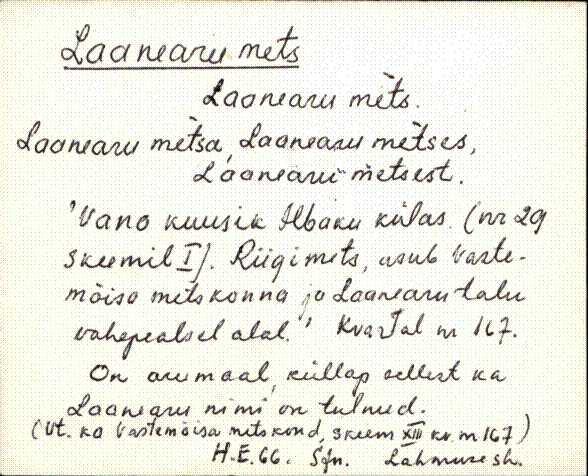 Laanearu mets
Laanearu mèts.
Laanearu mètsa, Laanearu mètses,
Laanearu mètsest.
"Vano kuusik Ilbaku külas. (nr 29
skeemil I). Riigimets, asub Vaste-
mõisa metskonna ja Laanearu talu
vahepealsel alal." Kvartal nr 167.
On arumaal, küllap sellest ka
Laanearu nimi on tulnud.
(Vt. ka Vastemõisa metskond, skeem XIII kv. nr 167)
H.E. 66. Sjn. Lahmuse sk.